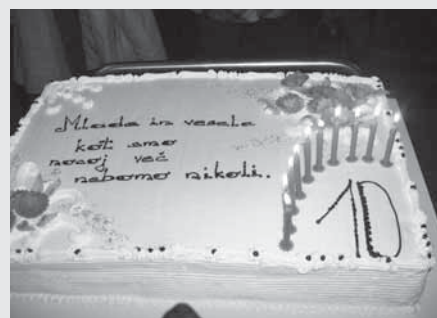 Mlade in vesele
kot smo
nocoj več
nebomo nikoli..
1D